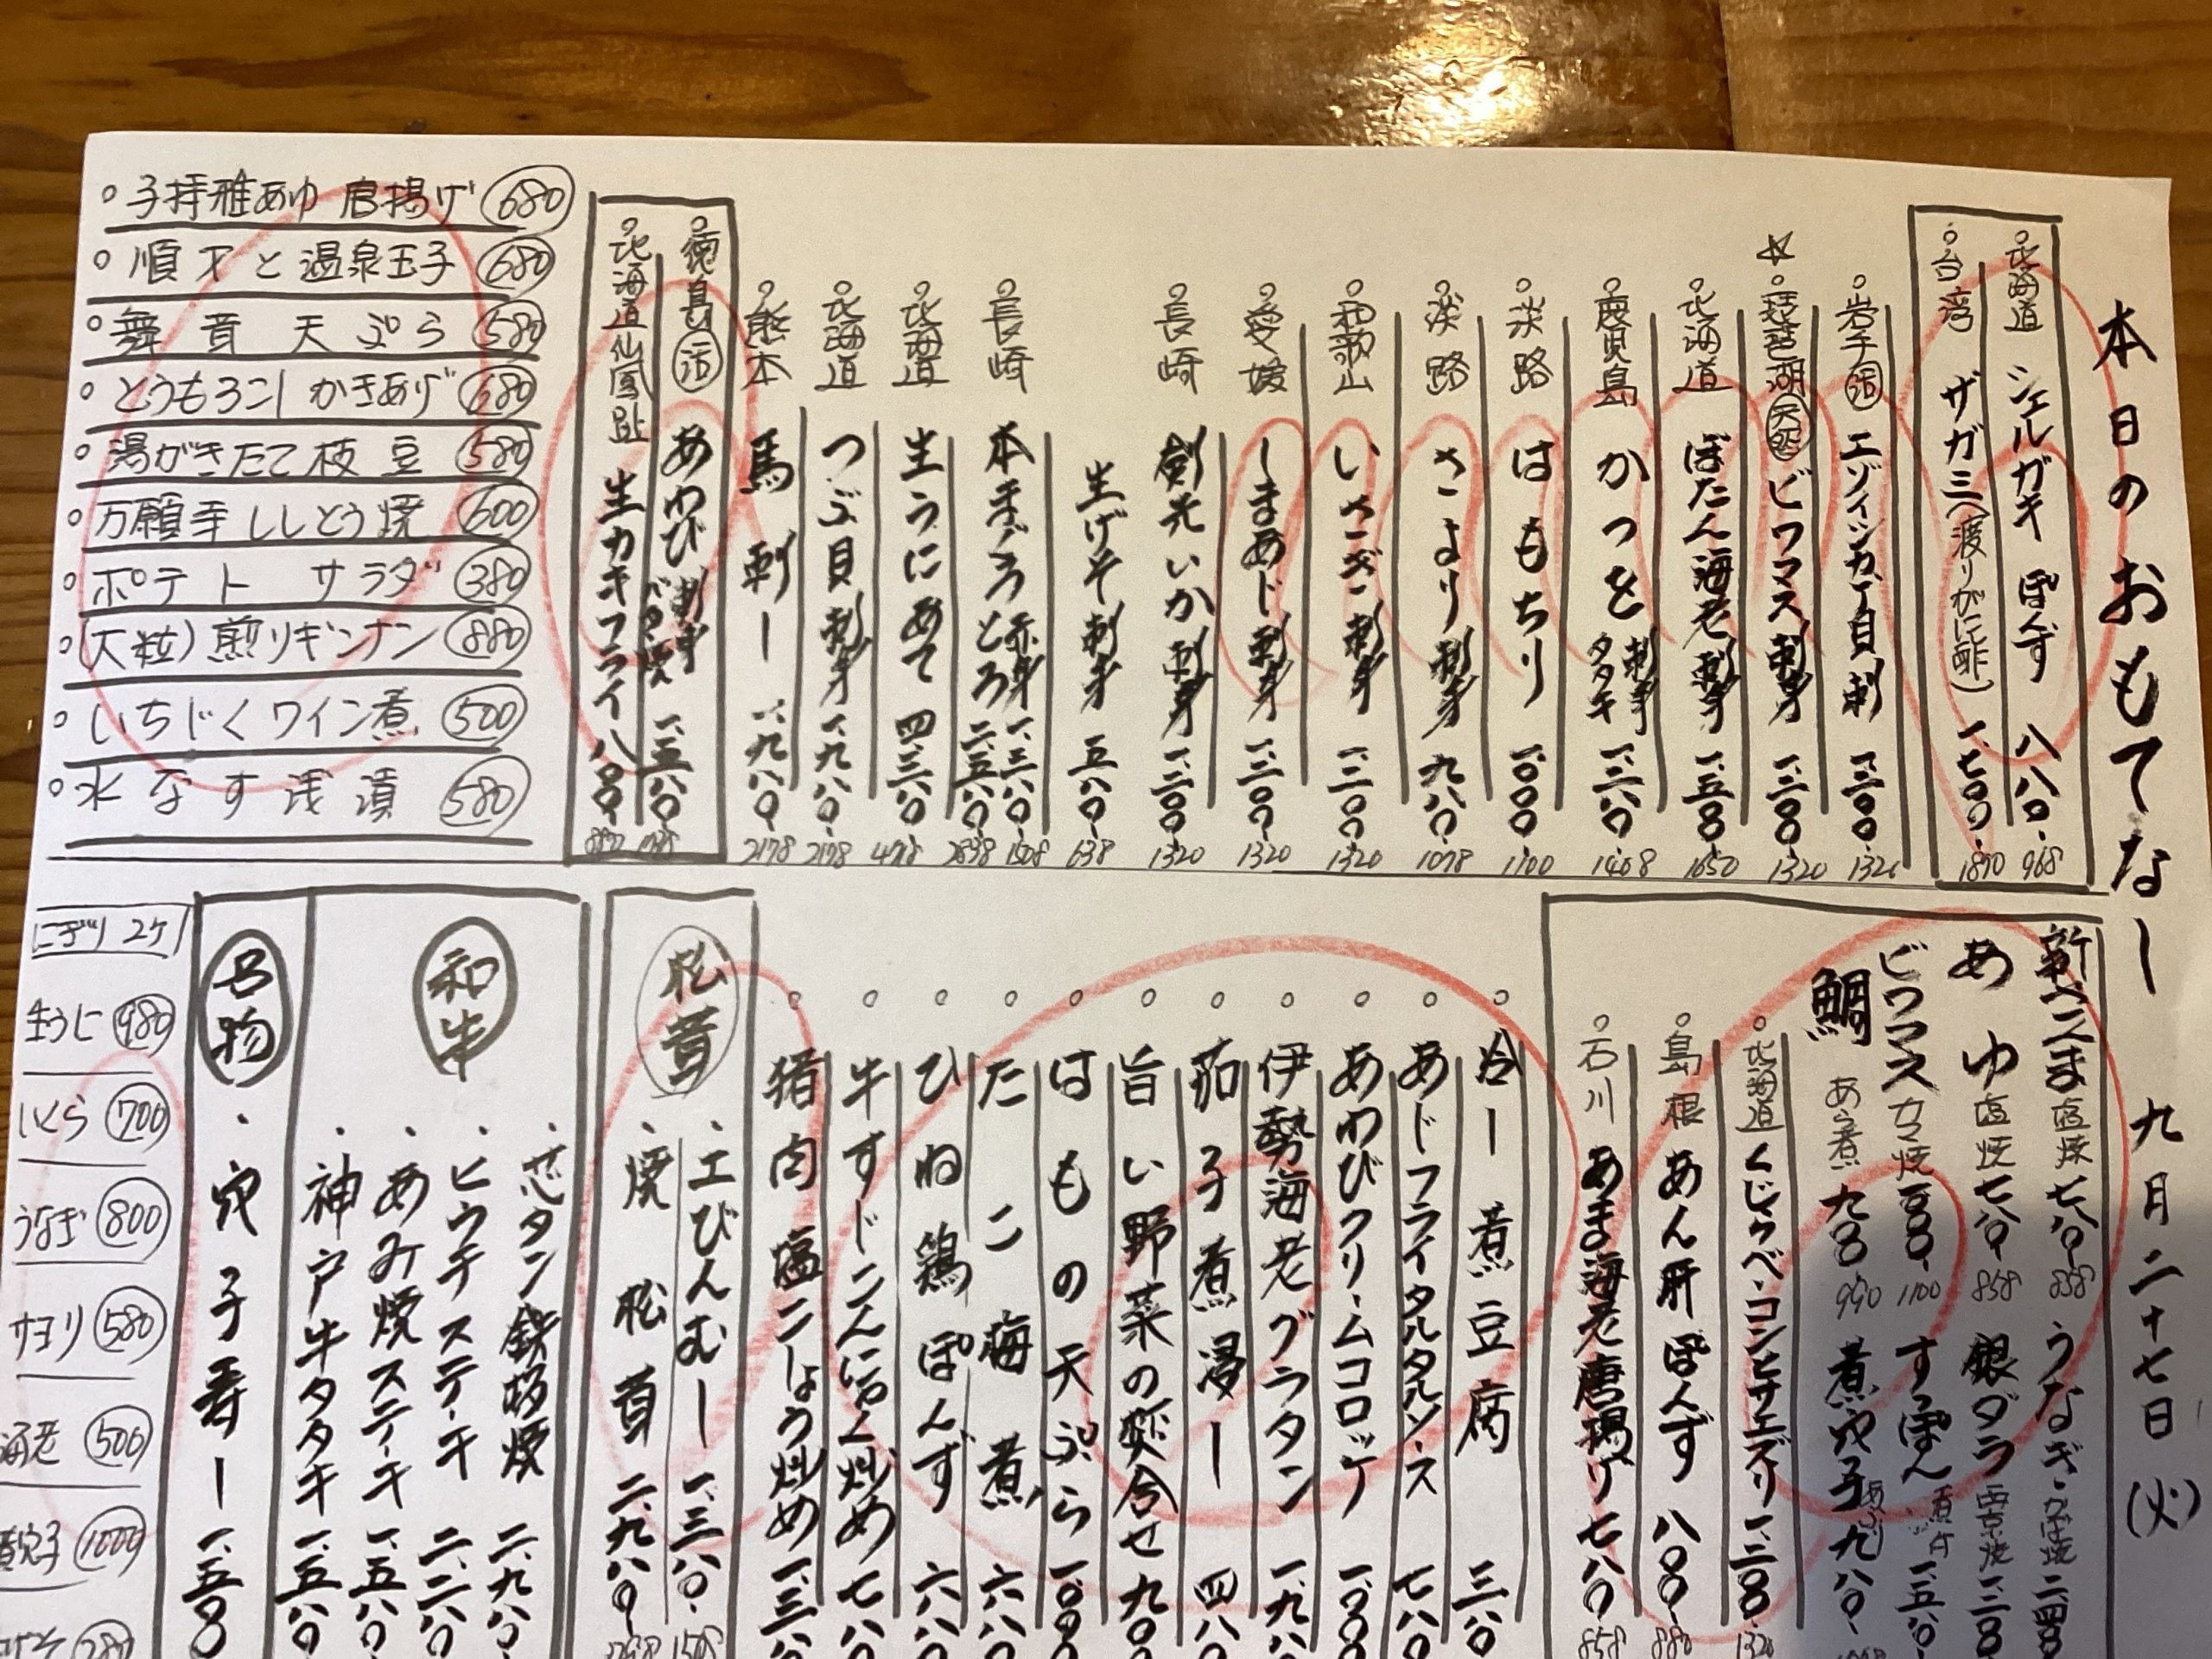 本日のおもてなし 九月二十七日(火)
北海道 シェルガキ ぽんず 八八〇 968
台湾 ザガ三(渡りがに酢) 一、七〇〇 1870
岩手 活 エゾイシカゲ貝刺 一、二〇〇
☆琵琶湖 天然 ビワマス刺身 一、二〇〇 1320
北海道 ぼたん海老刺身 一、五〇〇 1650
鹿児島 かつを 刺身 タタキ 一、二八〇 1408
淡路 はもちり 一、〇〇〇 1100
淡路 さより刺身 九八〇 1078
和歌山 いさぎ刺身 一、二〇〇 1320
愛媛 しまあじ刺身 一、二〇〇 1320
長崎 剣先いか刺身 一、二〇〇 1320
生げそ刺身 五八〇 638
長崎 本まぐろ 赤身 一、三八〇 とろ 二、五八〇 2838
北海道 生うにあて 四、三八〇
北海道 つぶ貝刺身 一、九八〇 2178
熊本 馬刺し 一、九八〇 2178
徳島 活 あわび 刺身 一、五八〇
北海道仙鳳趾 生カキフライ 八〇〇 880
子持稚あゆ 唐揚げ 680
順才と温泉玉子 680
舞茸天ぷら 580
とうもろこしかきあげ 680
湯がきたて枝豆 580
万願寺ししとう焼 600
ポテトサラダ 380
(大粒)煎りギンナン 880
いちじくワイン煮 500
水なす浅漬 580
新さんま 塩焼 七八〇 858 うなぎ
あゆ 塩焼 七八〇 858 銀ダラ
ビワマス カマ焼 一〇〇〇 1100 すっぽん 一、五八〇
鯛 あら煮 九〇〇 990 煮穴子 九八〇
北海道 くじらベーコンヒサエズリ 一、二〇〇 1320
島根 あん肝ぽんず 八〇〇 880
石川 あま海老唐揚げ 七八〇 858
冷し煮豆腐 三八〇
あじフライタルタルソース 七八〇
あわびクリームコロッケ 一、〇〇〇
伊勢海老グラタン 一、九八〇
茄子煮浸し 四八〇
旨い野菜の炊合せ 九〇〇
はもの天ぷら 一、〇〇〇
たこ梅煮 六八〇
ひね鶏ぽんず 六八〇
牛すじこんにゃく炒め 七八〇
猪肉塩こしょう炒め 一、三八〇
松茸
・土びんむし 一、三八〇 1508
・焼松茸 二、九八〇
和牛
・芯タン鉄板焼 二、九八〇
・ヒウチステーキ 二、二八〇
・あみ焼ステーキ 一、五八〇
・神戸牛タタキ 一、五八〇
名物
・穴子寿し 一、五〇〇
にぎり 2ケ
生うに 980
いくら 700
うなぎ 800
サヨリ 580
海老 500
煮穴子 1000
280